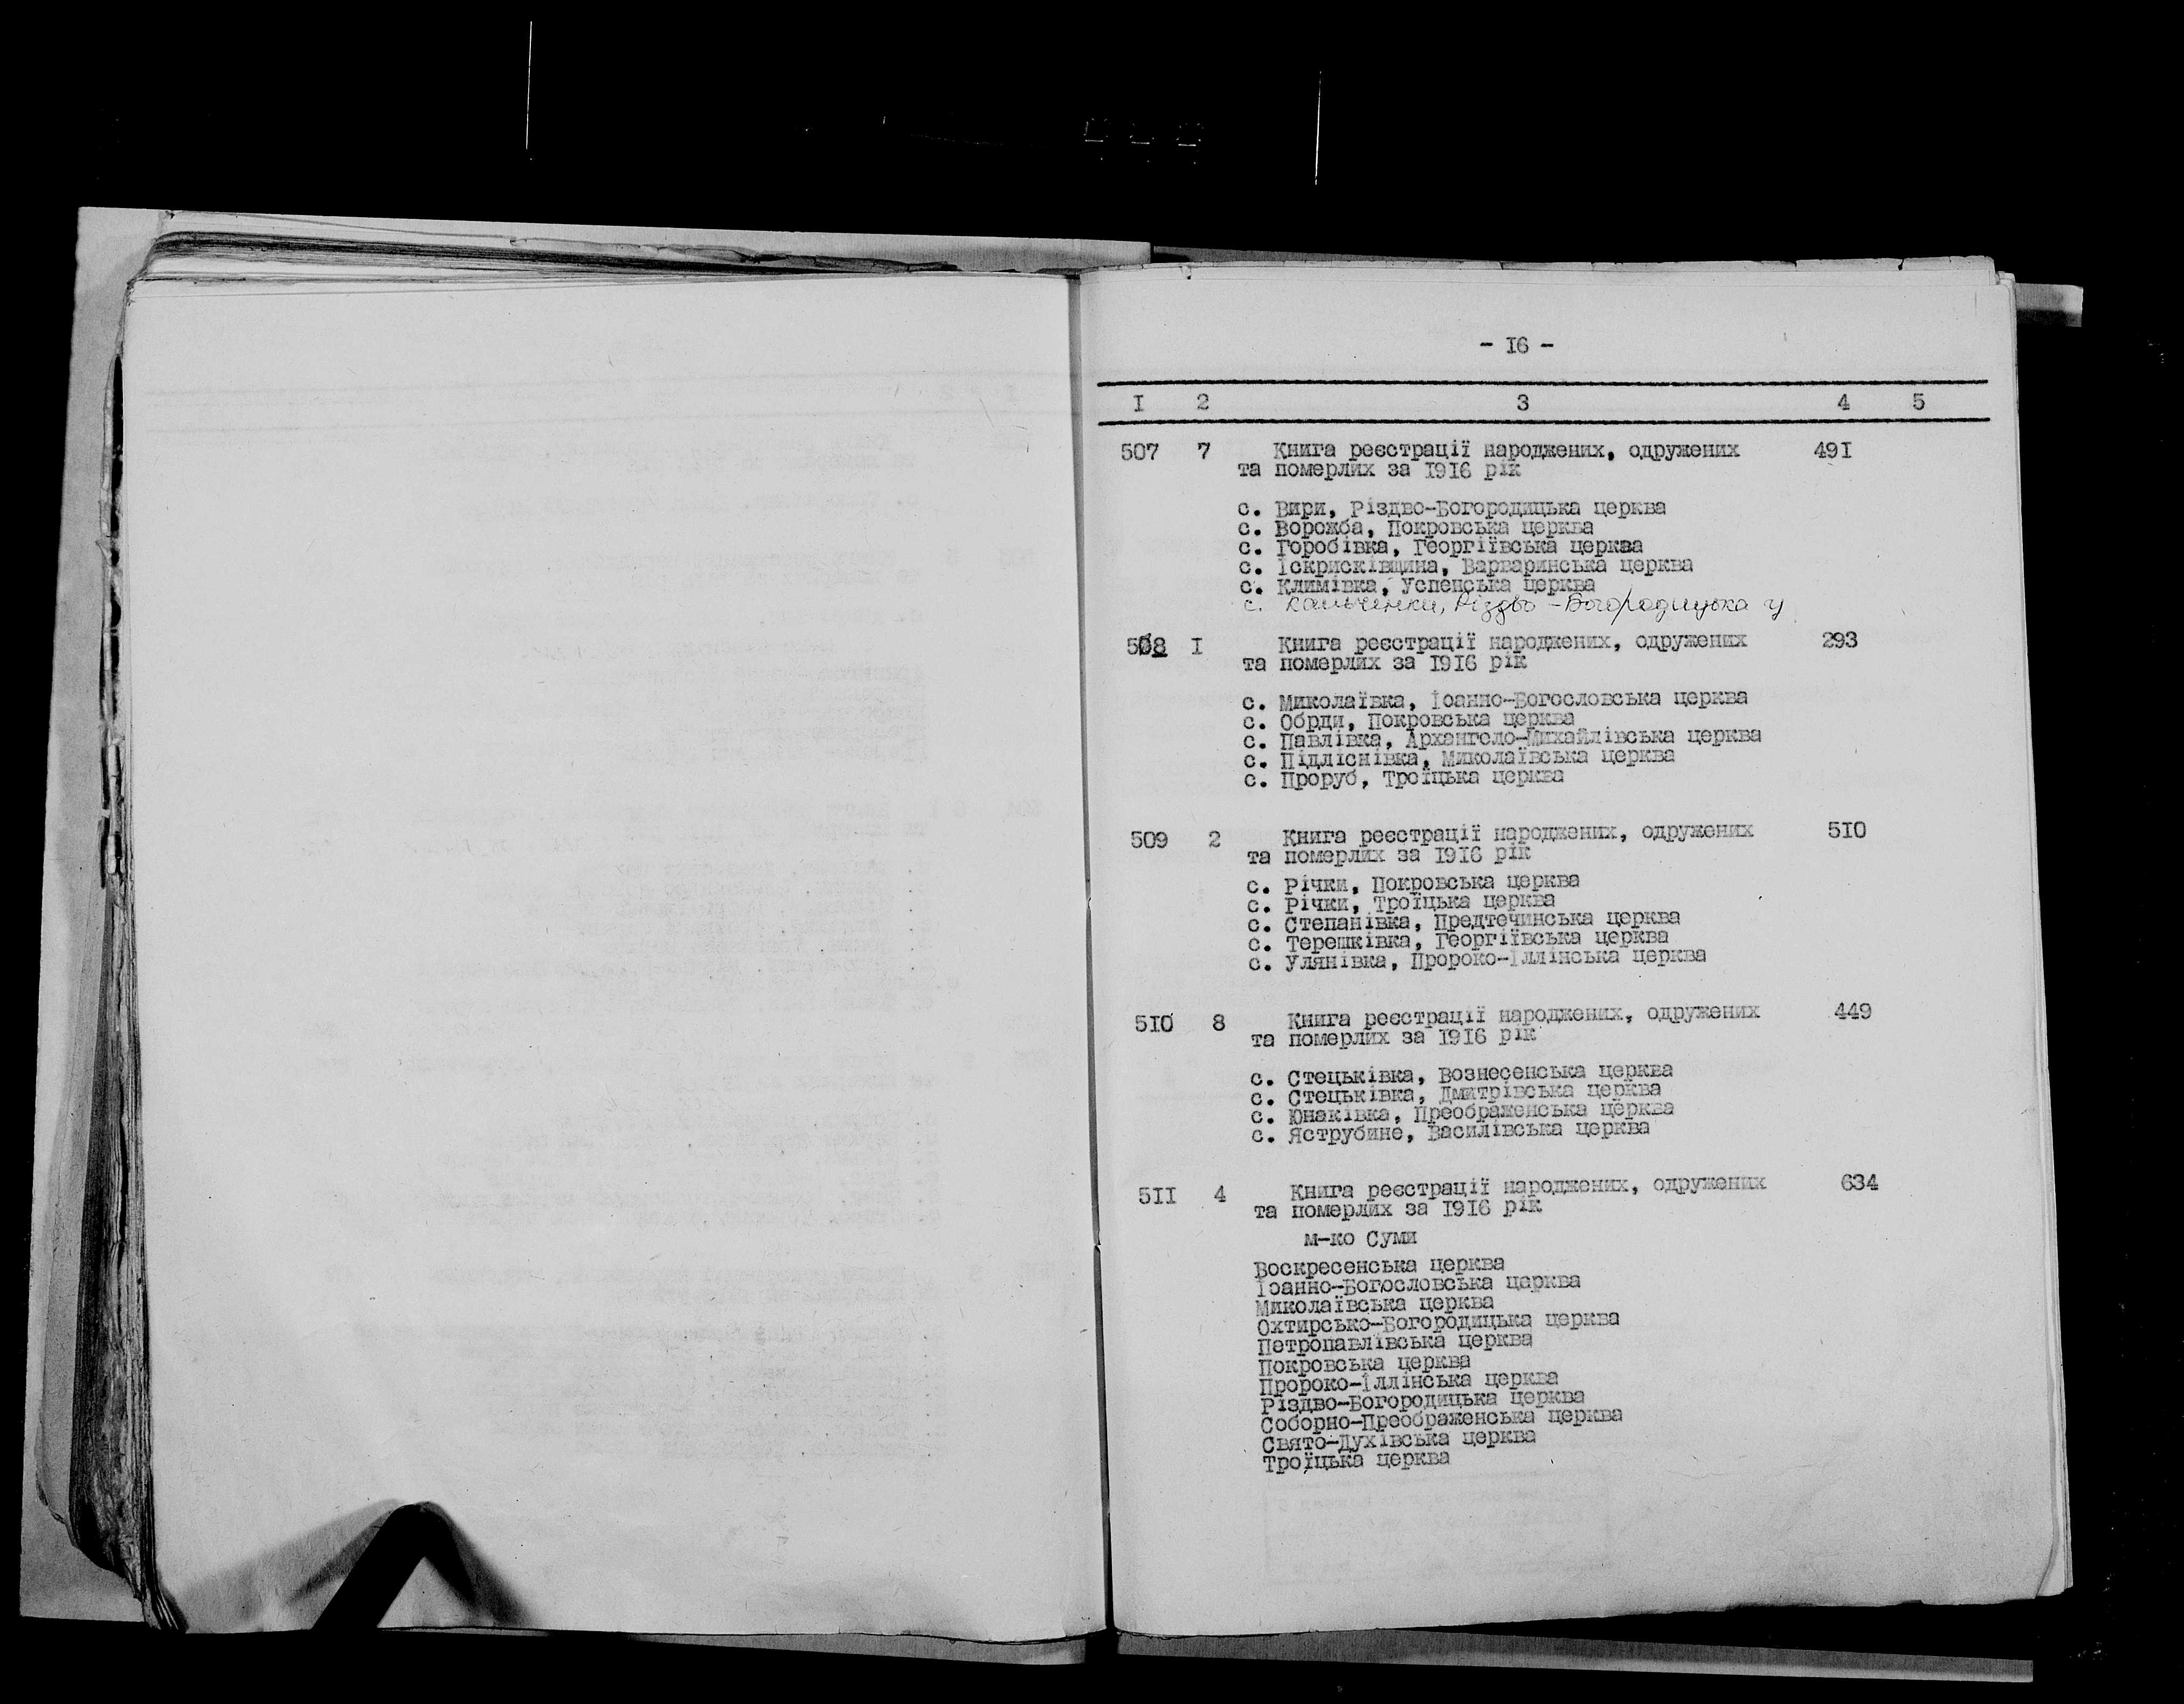 - I6 -
I 2 3 4 5
507 7 Книга реєстрації народжених, одружених 49I
та померлих за I9I6 рік
с. Вири, Різдво-Богородицька церква
с. Ворожба, Покровська церква
с. Горобівка, Георгіївська церква
с. Іскрисківщина, Варваринська церква
с. Климівка, Успенська церква
с. Кальченки, Різдво-Богородицька ц
508 I Книга реєстрації народжених, одружених 293
та померлих за I9I6 рік
с. Миколаївка, Іоанно-Богословська церква
с. Обрди, Покровська церква
с. Павлівка, Архангело-Михайлівська церква
с. Підліснівка, Миколаївська церква
с. Проруб, Троїцька церква
509 2 Книга реєстрації народжених, одружених 5I0
та померлих за I9I6 рік
с. Річки, Покровська церква
с. Річки, Троїцька церква
с. Степанівка, Предтечинська церква
с. Терешківка, Георгіївська церква
с. Улянівка, Пророко-Іллінська церква
5I0 8 Книга реєстрації народжених, одружених 449
та померлих за I9I6 рік
с. Стецьківка, Вознесенська церква
с. Стецьківка, Дмитрівська церква
с. Юнаківка, Преображенська церква
с. Яструбине, Василівська церква
5II 4 Книга реєстрації народжених, одружених 634
та померлих за I9I6 рік
м-ко Суми
Воскресенська церква
Іоанно-Богословська церква
Миколаївська церква
Охтирсько-Богородицька церква
Петропавлівська церква
Покровська церква
Пророко-Іллінська церква
Різдво-Богородицька церква
Соборно-Преображенська церква
Свято-Духівська церква
Троїцька церква